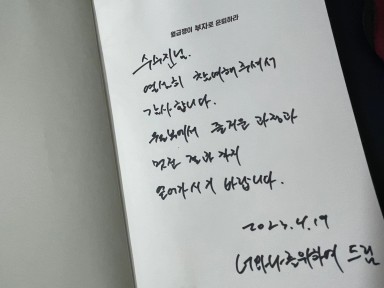 월급쟁이 부자로 은퇴하라
수진님.
열심히 참여해주셔서
감사합니다.
에서 즐거운 과정과
멋진 결과 까지
얻어가시기 바랍니다.
2023.4.19
너와나를위하여 드림